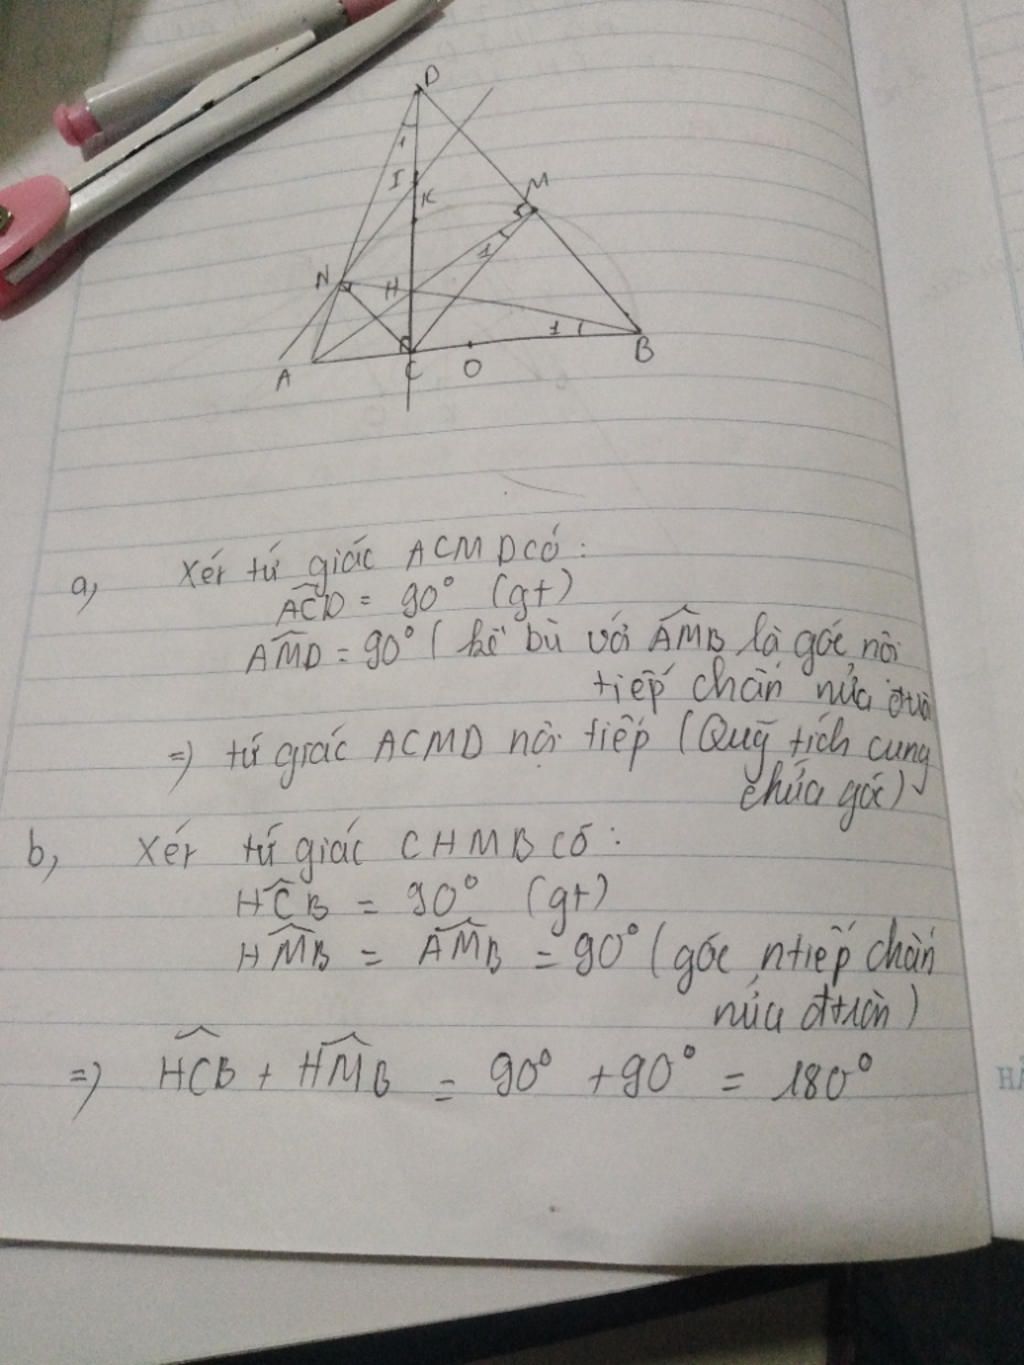 D
I
K
M
1
N
H
1
1
A
C
O
B
a, Xét tứ giác ACMD có:
ACD = 90° (gt)
AMD = 90° ( kề bù với AMB là góc nội
tiếp chắn nửa
=) tứ giác ACMD nội tiếp (Quỹ tích cung
chứa góc)
b, Xét tứ giác CHMB có:
HCB = 90° (gt)
HMB = AMB = 90° (góc ntiếp chắn
nửa đtròn)
=) HCB + HMB = 90° + 90° = 180°